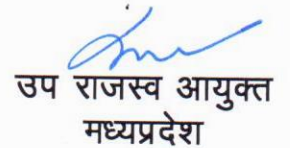 उप राजस्व आयुक्त
मध्यप्रदेश